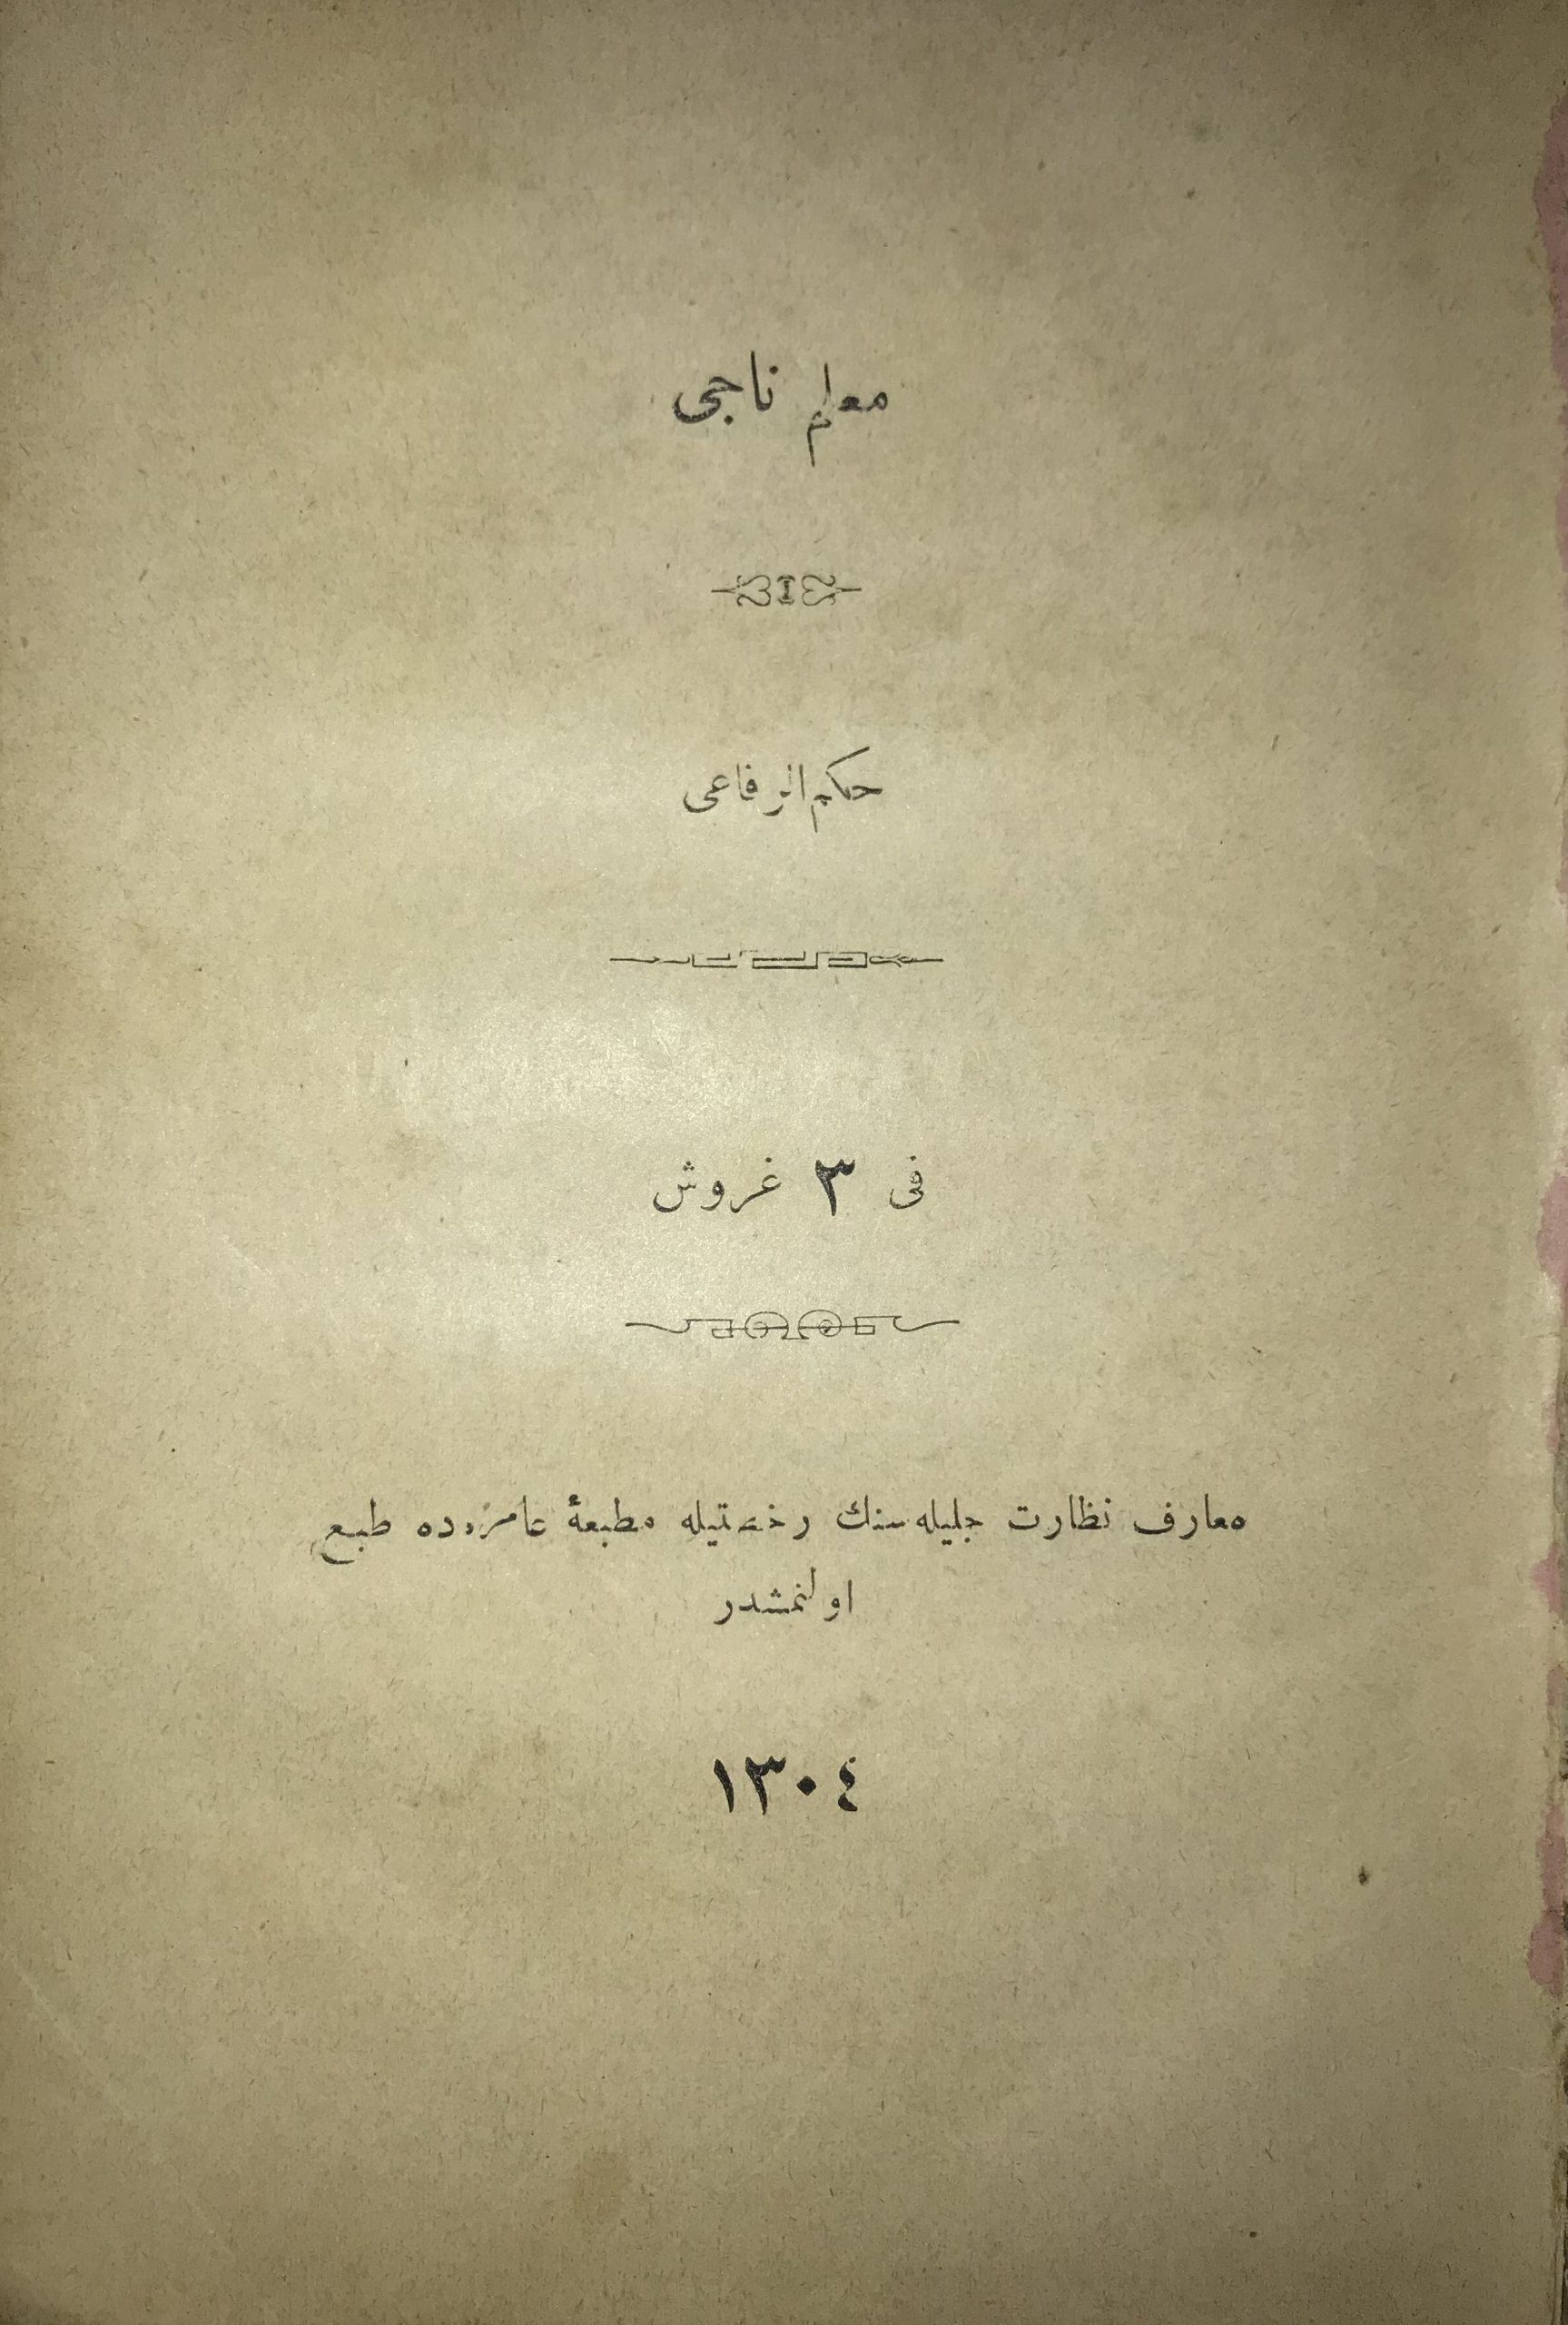 معلم ناجی
حكم الرفاعی
فی ٣ غروش
معارف نظارت جليله سنك رخصتيله مطبعۀ عامره ده طبع
اولنمشدر
١٣٠٤